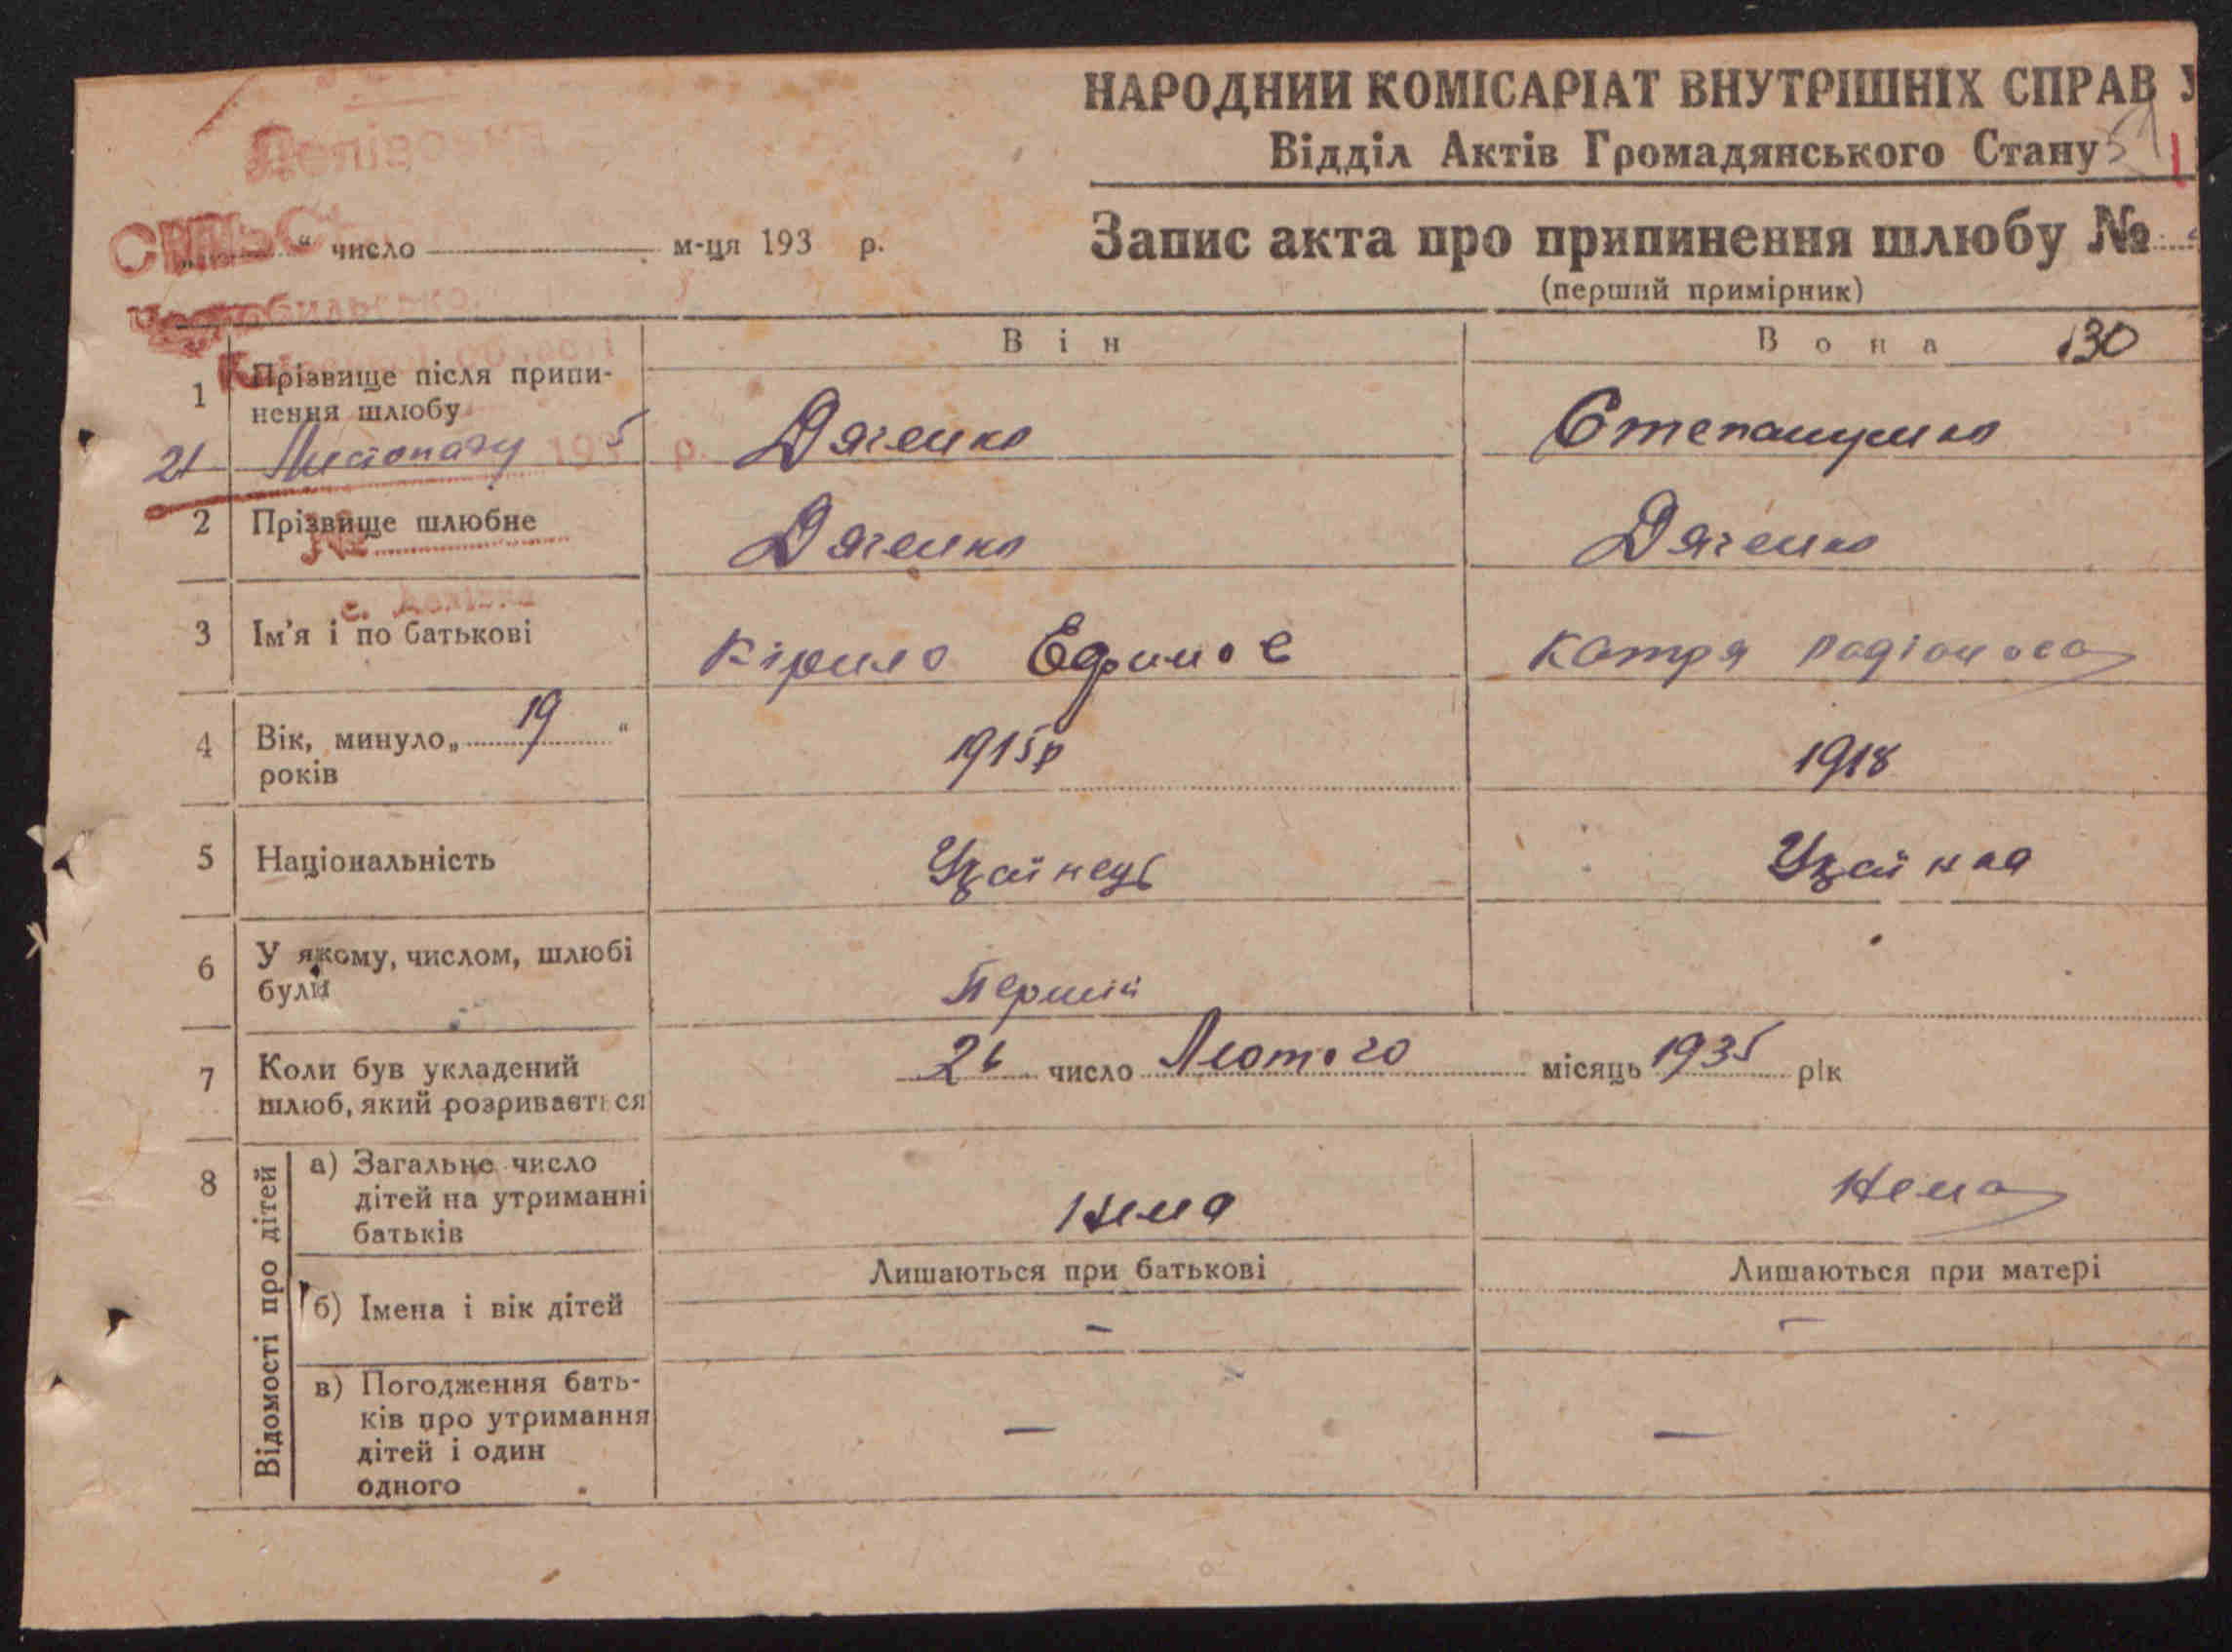 НАРОДНИЙ КОМІСАРІАТ ВНУТРІШНІХ СПРАВ У
Відділ Актів Громадянського Стану
Запис акта про припинення шлюбу №
(перший примірник)
„ “ число м-ця 193 р.
Він Вона 130
1 Прізвище після припинення шлюбу Дяченко Степанушко
21 Листопаду 1935 р.
2 Прізвище шлюбне Дяченко Дяченко
№
3 Ім'я і по батькові Кірило Ефимов Катря Радіонова
4 Вік, минуло „ 19 “ років 1915р 1918
5 Національність Українець Українка
6 У якому, числом, шлюбі були Першій
7 Коли був укладений шлюб, який розривається 26 число Лютого місяць 1935 рік
8 Відомості про дітей
а) Загальне число дітей на утриманні батьків Нема Нема
Лишаються при батькові Лишаються при матері
б) Імена і вік дітей – –
в) Погодження батьків про утримання дітей і один одного — —